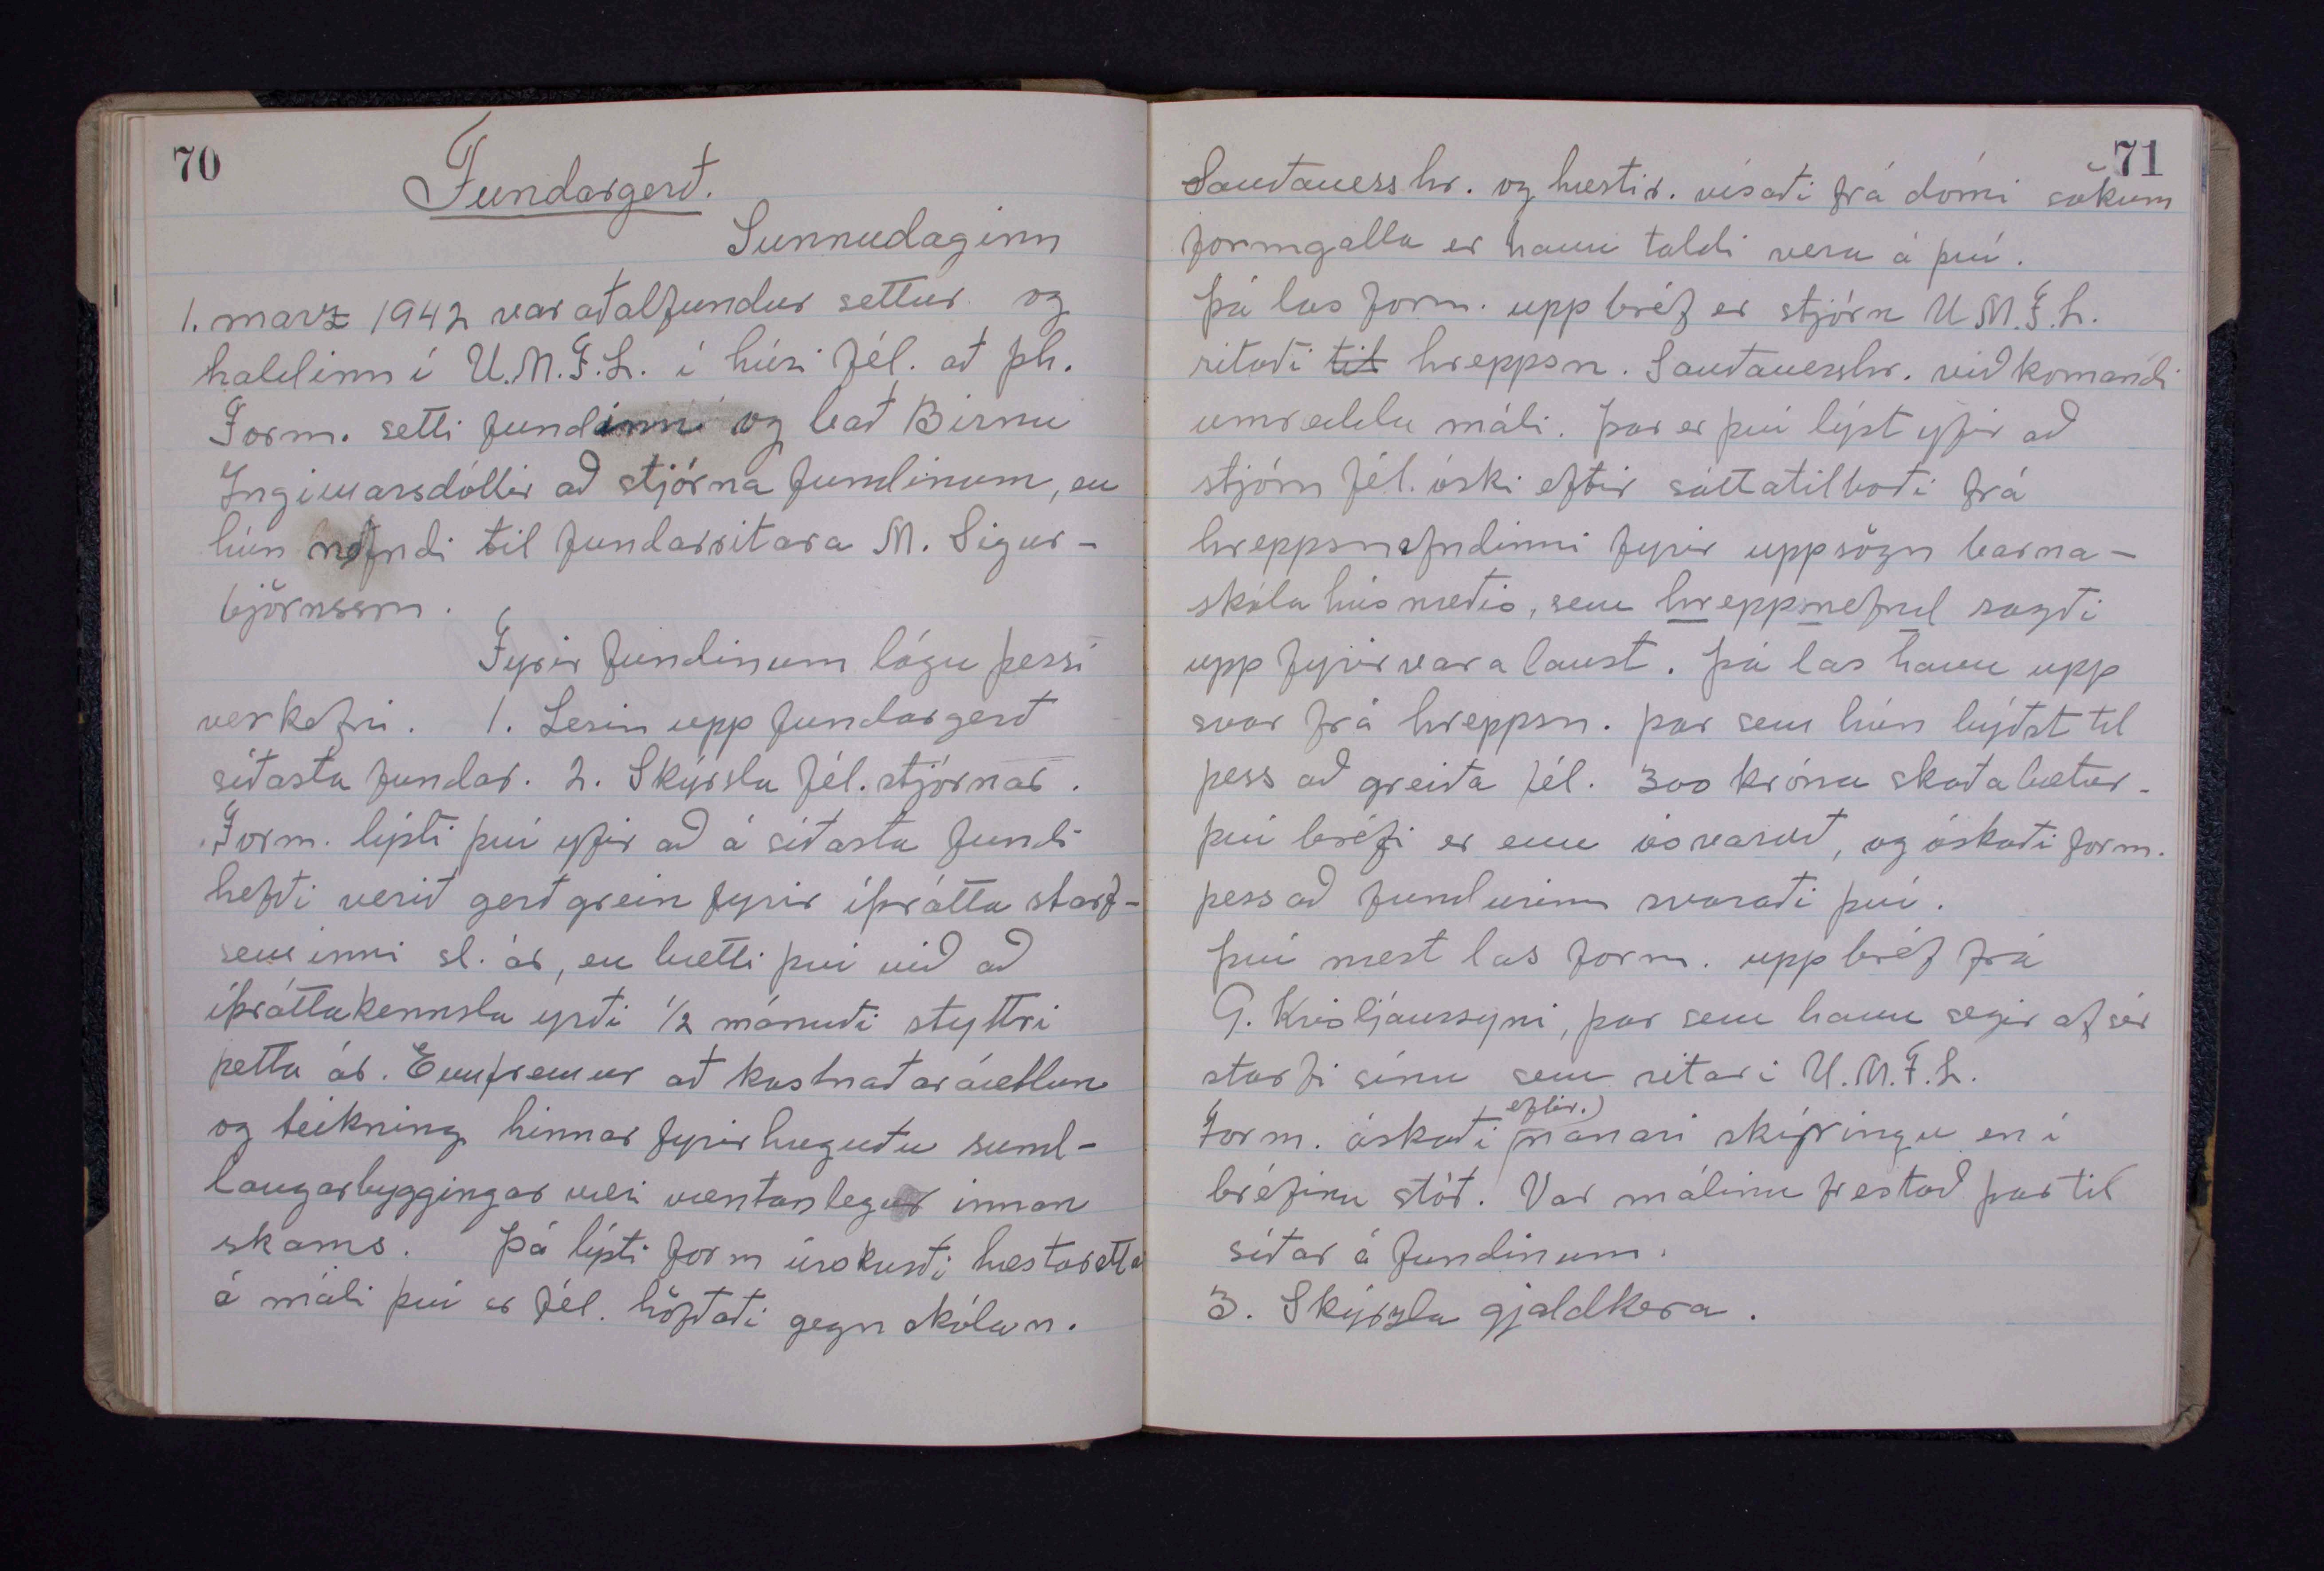 70
Fundargerð.
Sunnudaginn
1. marz 1942 var aðalfundur settur og
haldinn í U.M.F.L. í húsi fél. að Þh.
Form. setti fundinn og bað Birnu
Ingimarsdóttir að stjórna fundinum, en
hún nefndi til fundarritara M. Sigur-
björnsson.
Fyrir fundinum lágu þessi
verkefni. 1. Lesin upp fundargerð
síðasta fundar. 2. Skýrsla fél. stjórnar.
Form. lýsti því yfir að á síðasta fundi
hefði verið gerð grein fyrir íþrótta starf-
seminni sl. ár, en bætti því við að
íþróttakennsla yrði 1/2 mánuði styttri
þetta ár. Ennfremur að kostnaðaráætlun
og teikning hinnar fyrirhuguðu sund-
laugarbyggingar væri væntanlegar innan
skams. Þá lýsti form úrskurði hæstarétta
á máli því er fél. höfðaði gegn skólan.
71
Sauðaness hr. og hæstir. vísaði frá dómi sökum
formgalla er hann taldi vera á því.
Þá las form. upp bréf er stjórn U.M.F.L.
ritaði til hreppsn. Sauðaneshr. viðkomandi
umræddu máli. Þar er því lýst yfir að
stjórn fél. óski eftir sáttatilboði frá
hreppsnefndinni fyrir uppsögn barna-
skóla húsnæðis, sem hreppsnefnd sagði
upp fyrirvaralaust. Þá las hann upp
svar frá hreppsn. þar sem hún býðst til
þess að greiða fél. 300 króna skaðabætur.
Því bréfi er enn ósvarað, og óskaði form.
þess að fundurinn svaraði því.
Því næst las form. upp bréf frá
G. Kristjánssyni, þar sem hann segir af sér
starfi sínu sem ritari U.M.F.L.
eftir.)
Form. óskaði nánari skýringu en í
bréfinu stóð. Var málinu frestað þar til
síðar á fundinum.
3. Skýrzla gjaldkera.